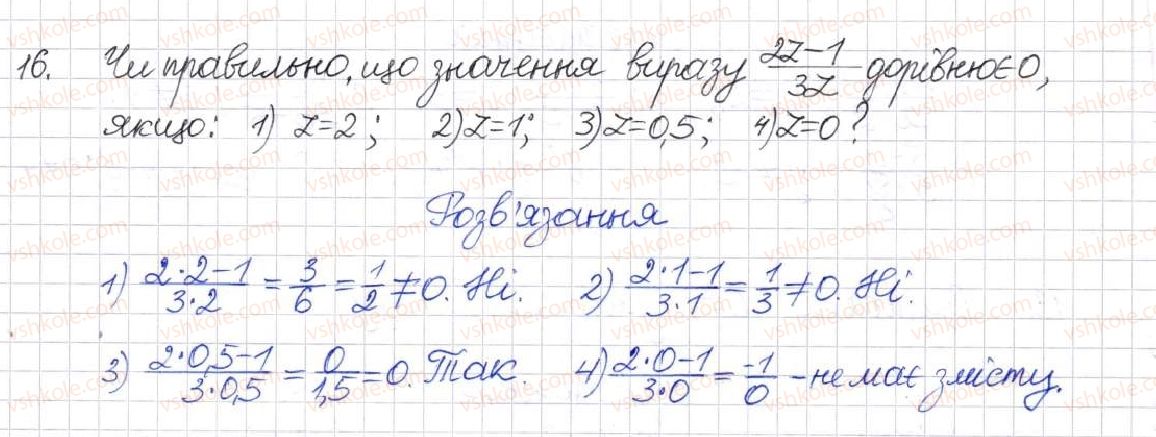 16. Чи правильно, що значення виразу (2z-1)/(3z) дорівнює 0,
якщо: 1) z=2; 2) z=1; 3) z=0,5; 4) z=0?
Розв'язання
1) (2·2-1)/(3·2) = 3/6 = 1/2 ≠ 0. Ні. 2) (2·1-1)/(3·1) = 1/3 ≠ 0. Ні.
3) (2·0,5-1)/(3·0,5) = 0/1,5 = 0. Так. 4) (2·0-1)/(3·0) = -1/0 - не має змісту.
vshkole.com